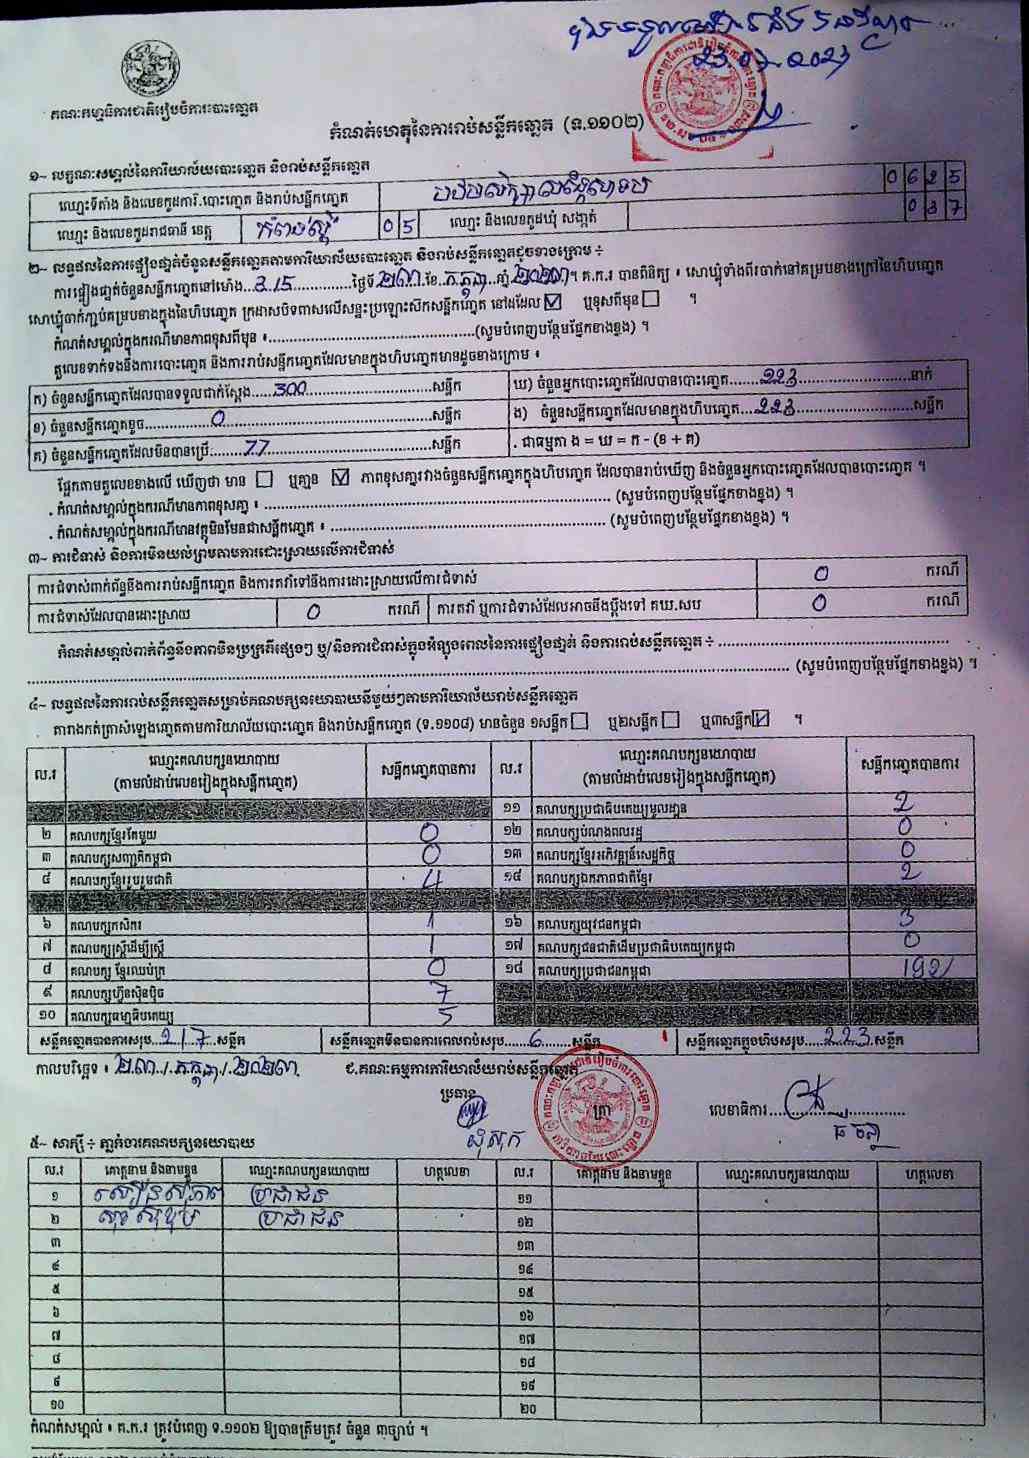 23.07.2023
គណៈកម្មាធិការជាតិរៀបចំការបោះឆ្នោត
កំណត់ហេតុនៃការរាប់សន្លឹកឆ្នោត (ទ.១១០២)
១~ លក្ខណៈសម្គាល់នៃការិយាល័យបោះឆ្នោត និងរាប់សន្លឹកឆ្នោត
ឈ្មោះទីតាំង និងលេខកូដការិ.បោះឆ្នោត និងរាប់សន្លឹកឆ្នោត 0625
ឈ្មោះ និងលេខកូដរាជធានី ខេត្ត កំពង់ស្ពឺ 05 ឈ្មោះ និងលេខកូដឃុំ សង្កាត់ 037
២~ លទ្ធផលនៃការផ្ទៀងផ្ទាត់ចំនួនសន្លឹកឆ្នោតតាមការិយាល័យបោះឆ្នោត និងរាប់សន្លឹកឆ្នោតដូចខាងក្រោម ÷
ការផ្ទៀងផ្ទាត់ចំនួនសន្លឹកឆ្នោតនៅម៉ោង...3:15...ថ្ងៃទី២៣.ខែ.កក្កដា.ឆ្នាំ២០២៣។ គ.ក.រ បានពិនិត្យ ៖ សោឃ្លុំទាំងពីរចាក់នៅគម្របខាងក្រៅនៃហិបឆ្នោត
សោឃ្លុំចាក់ភ្ជាប់គម្របខាងក្នុងនៃហិបឆ្នោត ក្រដាសបិទពាសលើសន្ទះប្រឡោះស៊កសន្លឹកឆ្នោត នៅដដែល ☑ ឬខុសពីមុន ☐ ។
កំណត់សម្គាល់ក្នុងករណីមានភាពខុសពីមុន ៖...(សូមបំពេញបន្ថែមផ្នែកខាងខ្នង) ។
តួលេខទាក់ទងនឹងការបោះឆ្នោត និងការរាប់សន្លឹកឆ្នោតដែលមានក្នុងហិបឆ្នោតមានដូចខាងក្រោម ៖
ក) ចំនួនសន្លឹកឆ្នោតដែលបានទទួលជាក់ស្តែង...300...សន្លឹក ឃ) ចំនួនអ្នកបោះឆ្នោតដែលបានបោះឆ្នោត...223...នាក់
ខ) ចំនួនសន្លឹកឆ្នោតខូច...0...សន្លឹក ង) ចំនួនសន្លឹកឆ្នោតដែលមានក្នុងហិបឆ្នោត...223...សន្លឹក
គ) ចំនួនសន្លឹកឆ្នោតដែលមិនបានប្រើ...77...សន្លឹក . ជាធម្មតា ង = ឃ = ក - (ខ + គ)
ផ្អែកតាមតួលេខខាងលើ ឃើញថា មាន ☐ ឬគ្មាន ☑ ភាពខុសគ្នារវាងចំនួនសន្លឹកឆ្នោតក្នុងហិបឆ្នោត ដែលបានរាប់ឃើញ និងចំនួនអ្នកបោះឆ្នោតដែលបានបោះឆ្នោត ។
. កំណត់សម្គាល់ក្នុងករណីមានភាពខុសគ្នា ៖ ... (សូមបំពេញបន្ថែមផ្នែកខាងខ្នង) ។
. កំណត់សម្គាល់ក្នុងករណីមានវត្ថុមិនមែនជាសន្លឹកឆ្នោត ៖ ... (សូមបំពេញបន្ថែមផ្នែកខាងខ្នង) ។
៣~ ការជំទាស់ និងការមិនយល់ព្រមតាមការដោះស្រាយលើការជំទាស់
ការជំទាស់ពាក់ព័ន្ធនឹងការរាប់សន្លឹកឆ្នោត និងការតវ៉ាទៅនឹងការដោះស្រាយលើការជំទាស់ 0 ករណី
ការជំទាស់ដែលបានដោះស្រាយ 0 ករណី ការតវ៉ា ឬការជំទាស់ដែលអាចនឹងប្តឹងទៅ គឃ.សប 0 ករណី
កំណត់សម្គាល់ពាក់ព័ន្ធនឹងភាពមិនប្រក្រតីផ្សេងៗ ឬ/និងការជំទាស់ក្នុងអំឡុងពេលនៃការផ្ទៀងផ្ទាត់ និងការរាប់សន្លឹកឆ្នោត ÷ ...
... (សូមបំពេញបន្ថែមផ្នែកខាងខ្នង) ។
៤~ លទ្ធផលនៃការរាប់សន្លឹកឆ្នោតសម្រាប់គណបក្សនយោបាយនីមួយៗតាមការិយាល័យរាប់សន្លឹកឆ្នោត
តារាងកត់ត្រាសំឡេងឆ្នោតតាមការិយាល័យបោះឆ្នោត និងរាប់សន្លឹកឆ្នោត (ទ.១១០៨) មានចំនួន ១សន្លឹក ☐ ឬ២សន្លឹក ☐ ឬ៣សន្លឹក ☑ ។
ល.រ ឈ្មោះគណបក្សនយោបាយ (តាមលំដាប់លេខរៀងក្នុងសន្លឹកឆ្នោត) សន្លឹកឆ្នោតបានការ ល.រ ឈ្មោះគណបក្សនយោបាយ (តាមលំដាប់លេខរៀងក្នុងសន្លឹកឆ្នោត) សន្លឹកឆ្នោតបានការ
១១ គណបក្សប្រជាធិបតេយ្យមូលដ្ឋាន 2
២ គណបក្សខ្មែរតែមួយ 0 ១២ គណបក្សបំណងពលរដ្ឋ 0
៣ គណបក្សសញ្ជាតិកម្ពុជា 0 ១៣ គណបក្សខ្មែរអភិវឌ្ឍន៍សេដ្ឋកិច្ច 0
៤ គណបក្សខ្មែររួបរួមជាតិ 4 ១៤ គណបក្សឯកភាពជាតិខ្មែរ 2
៦ គណបក្សកសិករ 1 ១៦ គណបក្សយុវជនកម្ពុជា 3
៧ គណបក្សស្ត្រីដើម្បីស្ត្រី 1 ១៧ គណបក្សជនជាតិដើមប្រជាធិបតេយ្យកម្ពុជា 0
៨ គណបក្ស ខ្មែរឈប់ក្រ 0 ១៨ គណបក្សប្រជាជនកម្ពុជា 192
៩ គណបក្សហ្វ៊ុនស៊ិនប៉ិច 7
១០ គណបក្សធម្មាធិបតេយ្យ 5
សន្លឹកឆ្នោតបានការសរុប...217...សន្លឹក សន្លឹកឆ្នោតមិនបានការពេលរាប់សរុប...6...សន្លឹក សន្លឹកឆ្នោតក្នុងហិបសរុប...223...សន្លឹក
កាលបរិច្ឆេទ ៖ ២៣./.កក្កដា./.២០២៣. ជ.គណៈកម្មការការិយាល័យរាប់សន្លឹកឆ្នោត
ប្រធាន ត្រា លេខាធិការ...
៥~ សាក្សី ÷ ភ្នាក់ងារគណបក្សនយោបាយ
ល.រ គោត្តនាម និងនាមខ្លួន ឈ្មោះគណបក្សនយោបាយ ហត្ថលេខា ល.រ គោត្តនាម និងនាមខ្លួន ឈ្មោះគណបក្សនយោបាយ ហត្ថលេខា
១ ប្រជាជន ១១
២ ប្រជាជន ១២
៣ ១៣
៤ ១៤
៥ ១៥
៦ ១៦
៧ ១៧
៨ ១៨
៩ ១៩
១០ ២០
កំណត់សម្គាល់ ៖ គ.ក.រ ត្រូវបំពេញ ទ.១១០២ ឱ្យបានត្រឹមត្រូវ ចំនួន ៣ច្បាប់ ។